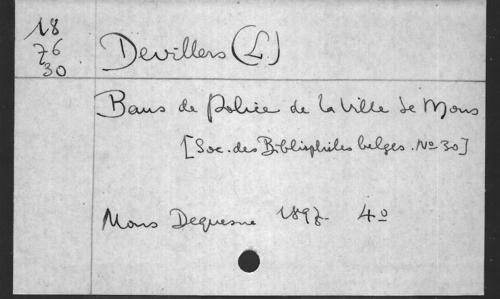 18
76
30
Devillers (L.)
Bans de police de la Ville de Mons
[Soc. des Bibliophiles belges. No 30]
Mons Dequesne 1897 4º